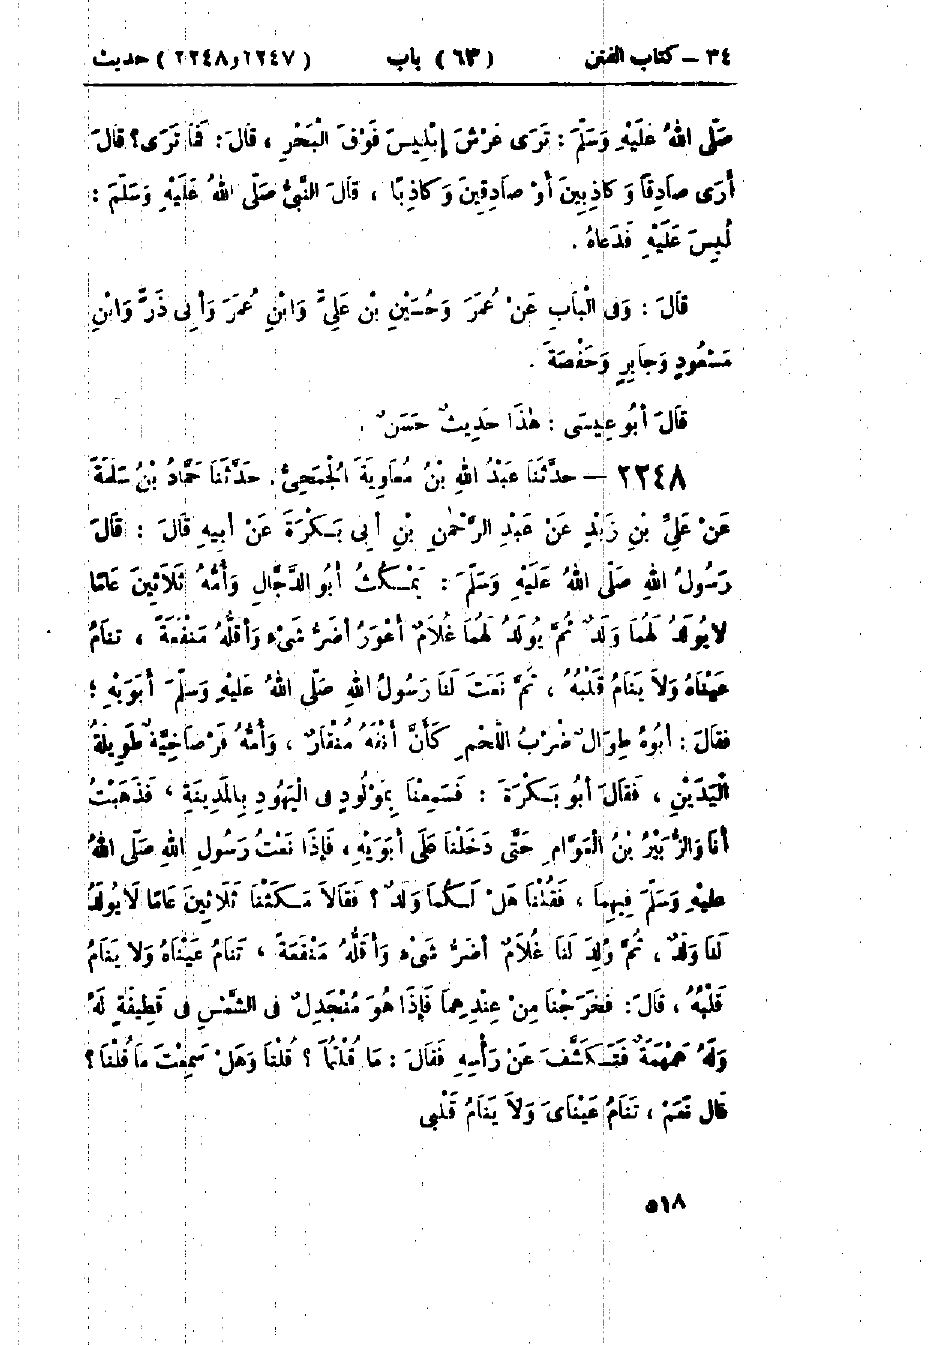 ٣٤ – كتاب الفتن ( ٦٣ ) باب ( ٢٢٤٧ و ٢٢٤٨ ) حديث
صَلَّى اللهُ عَلَيْهِ وَسَلَّمَ : تَرَى عَرْشَ إِبْلِيسَ فَوْقَ الْبَحْرِ ، قَالَ : فَمَا تَرَى؟ قَالَ
أَرَى صَادِقًا وَكَاذِبِينَ أَوْ صَادِقِينَ وَكَاذِبًا ، قَالَ النَّبِيُّ صَلَّى اللهُ عَلَيْهِ وَسَلَّمَ :
لُبِسَ عَلَيْهِ فَدَعَاهُ .
قَالَ : وَفِى الْبَابِ عَنْ عُمَرَ وَحُسَيْنِ بْنِ عَلِيٍّ وَابْنِ عُمَرَ وَأَبِى ذَرٍّ وَابْنِ
مَسْعُودٍ وَجَابِرٍ وَحَفْصَةَ .
قَالَ أَبُو عِيسَى : هٰذَا حَدِيثٌ حَسَنٌ .
٢٢٤٨ – حدَّثَنَا عَبْدُ اللهِ بْنُ مُعَاوِيَةَ الْجُمَحِيُّ . حَدَّثَنَا حَمَّادُ بْنُ سَلَمَةَ
عَنْ عَلِيِّ بْنِ زَيْدٍ عَنْ عَبْدِ الرَّحْمٰنِ بْنِ أَبِى بَكْرَةَ عَنْ أَبِيهِ قَالَ : قَالَ
رَسُولُ اللهِ صَلَّى اللهُ عَلَيْهِ وَسَلَّمَ : يَمْكُثُ أَبُو الدَّجَّالِ وَأُمُّهُ ثَلَاثِينَ عَامًا
لَا يُولَدُ لَهُمَا وَلَدٌ ثُمَّ يُولَدُ لَهُمَا غُلَامٌ أَعْوَرُ أَضَرُّ شَىْءٍ وَأَقَلُّهُ مَنْفَعَةً ، تَنَامُ
عَيْنَاهُ وَلَا يَنَامُ قَلْبُهُ ، ثُمَّ نَعَتَ لَنَا رَسُولُ اللهِ صَلَّى اللهُ عَلَيْهِ وَسَلَّمَ أَبَوَيْهِ ؛
فَقَالَ : أَبُوهُ طِوَالٌ ضَرْبُ اللَّحْمِ كَأَنَّ أَنْفَهُ مُنْقَارٌ ، وَأُمُّهُ فَرْضَاخِيَّةٌ طَوِيلَةُ
الْيَدَيْنِ ، فَقَالَ أَبُو بَكْرَةَ : فَسَمِعْنَا بِمَوْلُودٍ فِى الْيَهُودِ بِالْمَدِينَةِ ، فَذَهَبْتُ
أَنَا وَالزُّبَيْرُ بْنُ الْعَوَّامِ حَتَّى دَخَلْنَا عَلَى أَبَوَيْهِ ، فَإِذَا نَعْتُ رَسُولِ اللهِ صَلَّى اللهُ
عَلَيْهِ وَسَلَّمَ فِيهِمَا ، فَقُلْنَا هَلْ لَكُمَا وَلَدٌ ؟ فَقَالَا مَكَثْنَا ثَلَاثِينَ عَامًا لَا يُولَدُ
لَنَا وَلَدٌ ، ثُمَّ وُلِدَ لَنَا غُلَامٌ أَضَرُّ شَىْءٍ وَأَقَلُّهُ مَنْفَعَةً ، تَنَامُ عَيْنَاهُ وَلَا يَنَامُ
قَلْبُهُ ، قَالَ : فَخَرَجْنَا مِنْ عِنْدِهِمَا فَإِذَا هُوَ مُنْجَدِلٌ فِى الشَّمْسِ فِى قَطِيفَةٍ لَهُ
وَلَهُ هَمْهَمَةٌ فَتَكَشَّفَ عَنْ رَأْسِهِ فَقَالَ : مَا قُلْتُمَا ؟ قُلْنَا وَهَلْ سَمِعْتَ مَا قُلْنَا ؟
قَالَ نَعَمْ ، تَنَامُ عَيْنَاىَ وَلَا يَنَامُ قَلْبِى
٥١٨